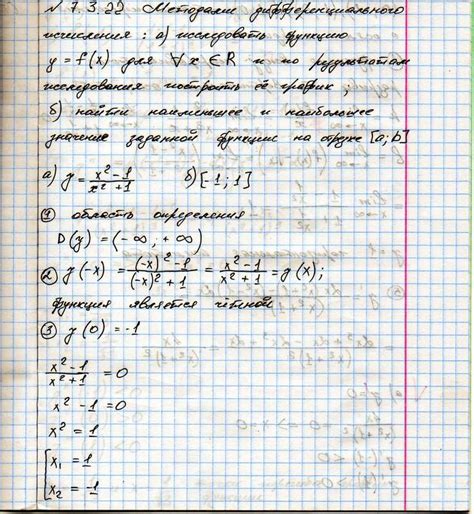 № 7.3.22 Методами дифференциального
исчисления: а) исследовать функцию
y = f(x) для ∀ x ∈ R и по результатам
исследования построить её график;
б) найти наименьшее и наибольшее
значение заданной функции на отрезке [a; b]
а) y = (x² - 1)/(x² + 1)   б) [-1; 1]
① область определения
D(y) = (-∞, +∞)
② y(-x) = ((-x)² - 1)/((-x)² + 1) = (x² - 1)/(x² + 1) = y(x);
функция является чётной
③ y(0) = -1
(x² - 1)/(x² + 1) = 0
x² - 1 = 0
x² = 1
[ x₁ = 1
x₂ = -1